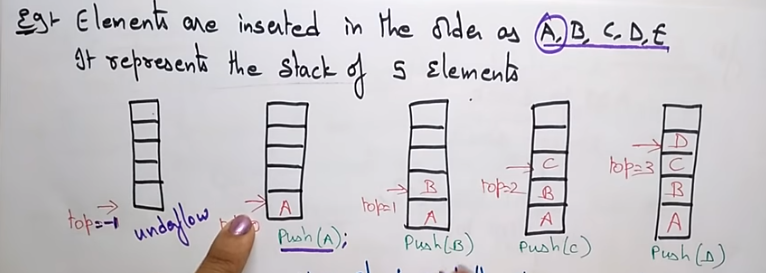 Eg:- Elements are inserted in the order as A, B, C, D, E
It represents the stack of 5 Elements
top=-1
underflow
A
Push(A);
top=1
B
A
Push(B)
top=2
C
B
A
Push(C)
top=3
D
C
B
A
Push(D)